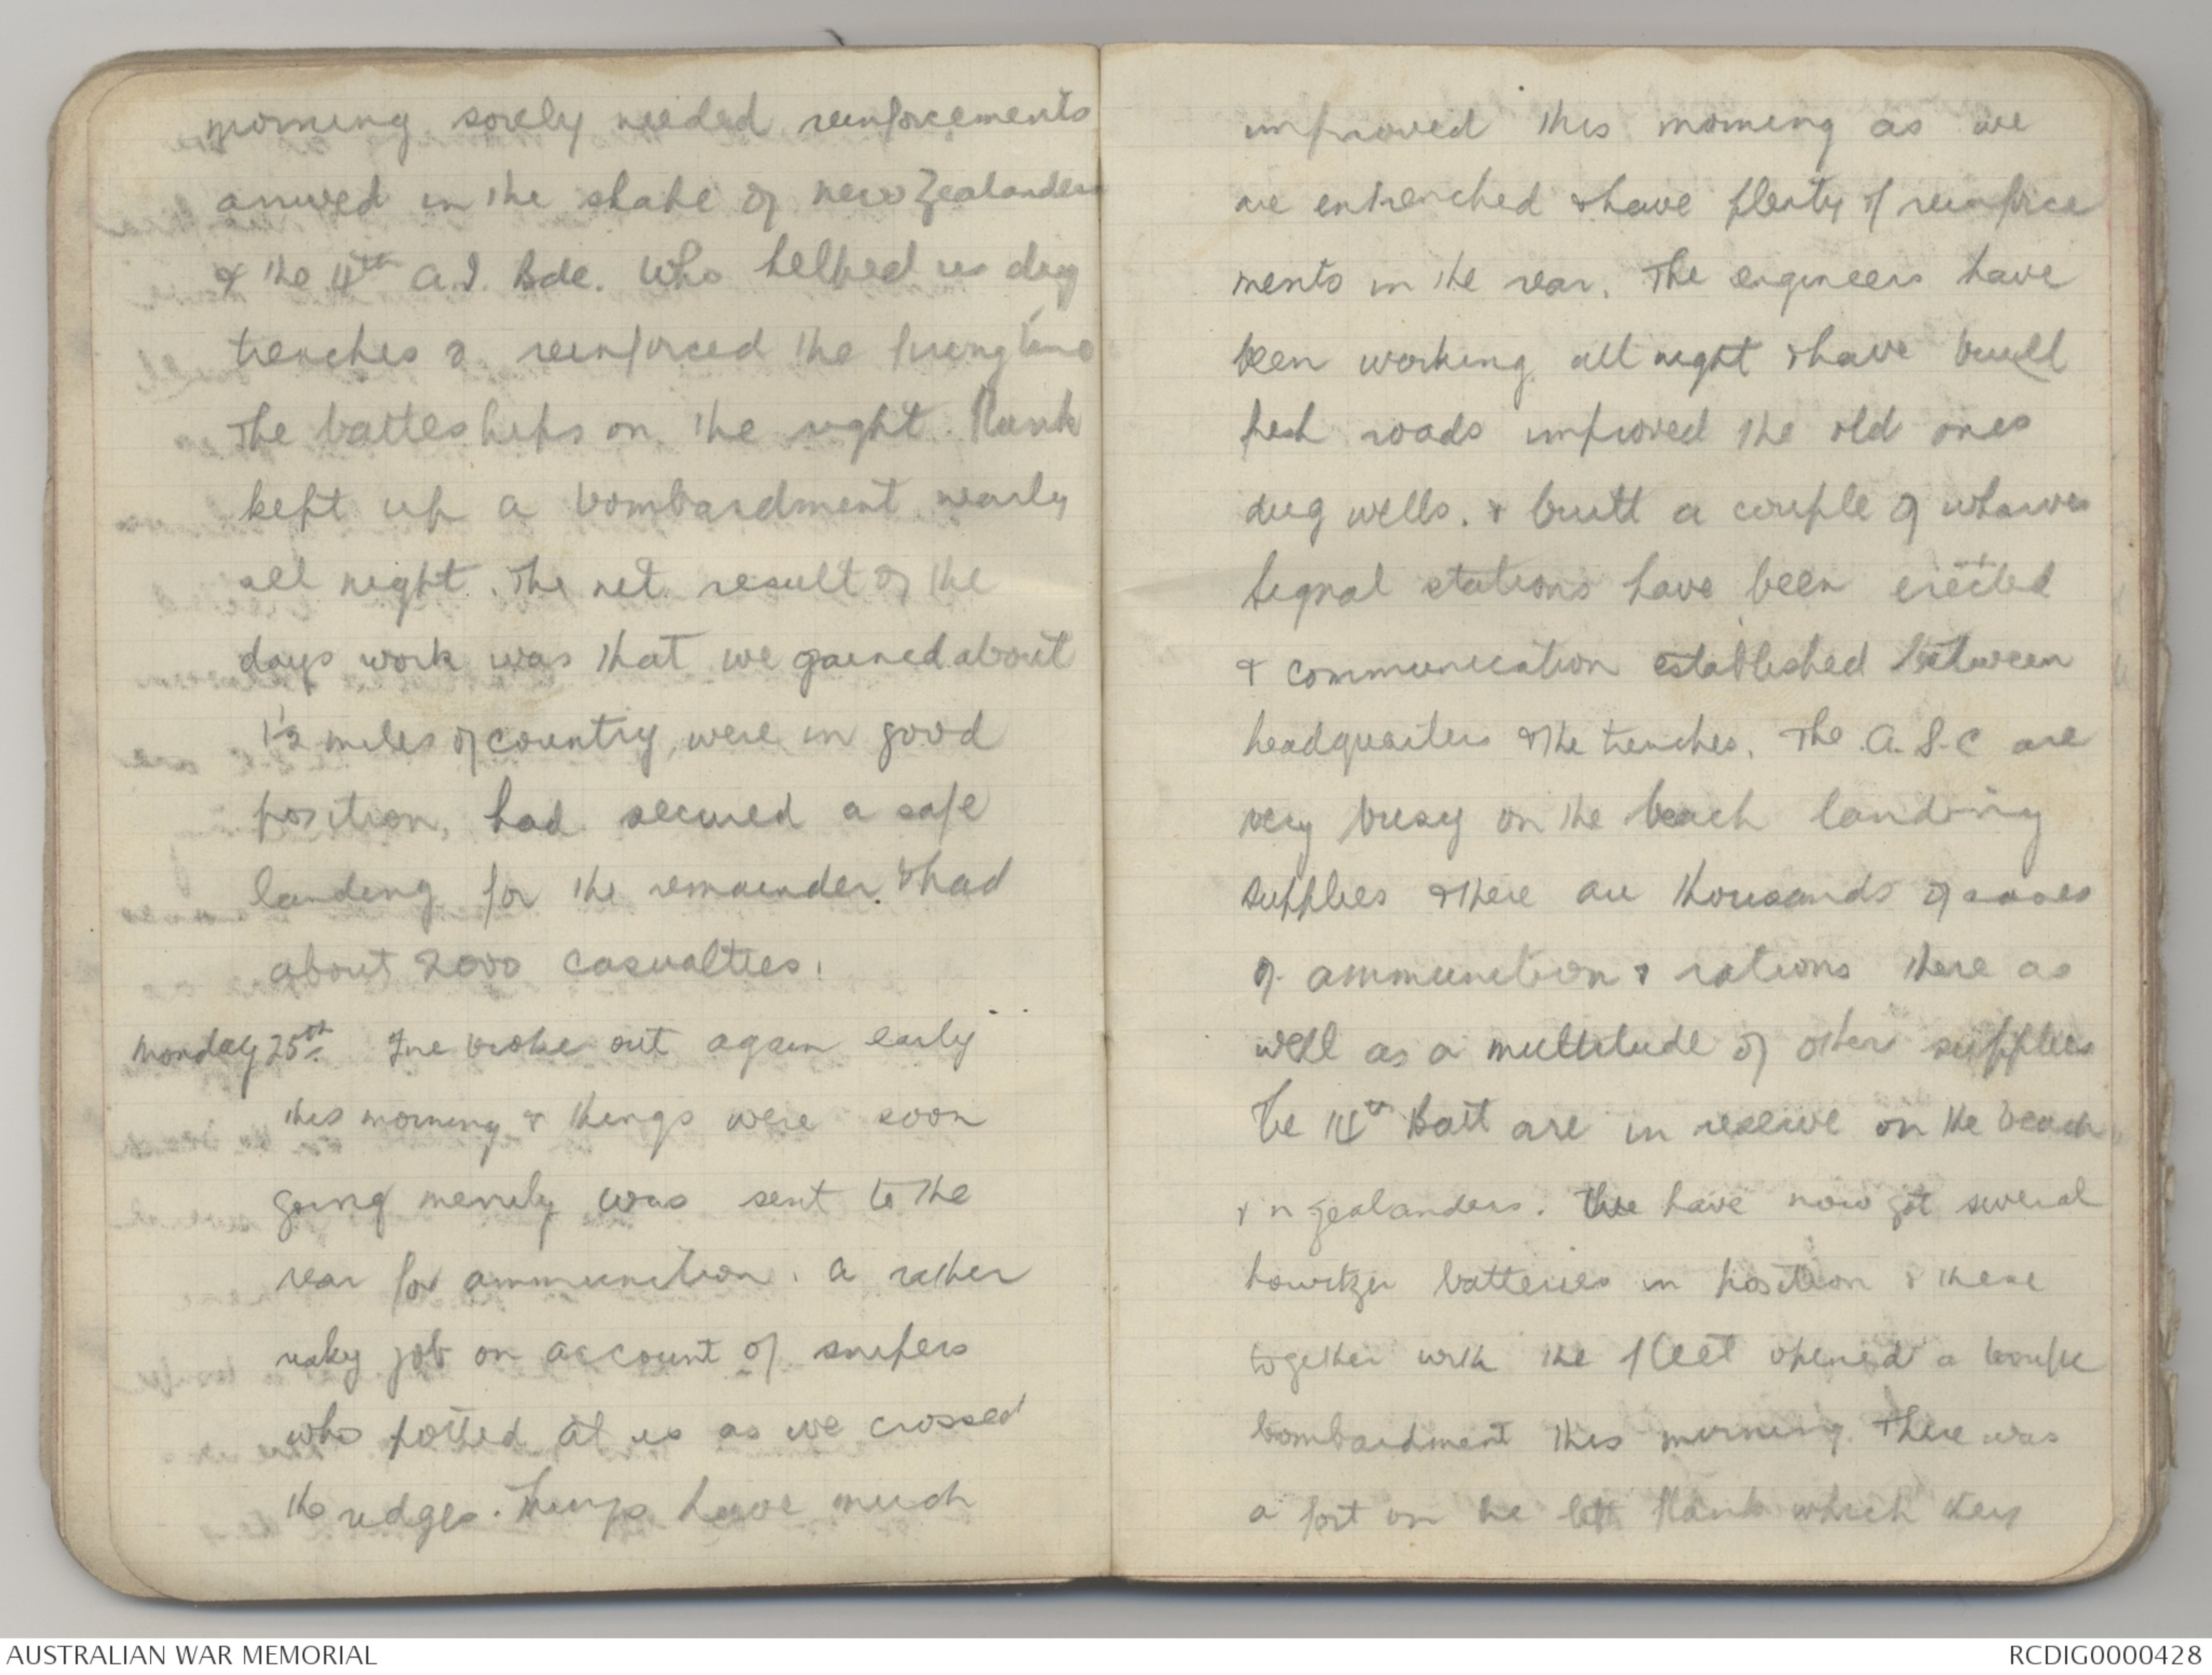 morning sorely needed reinforcements
arrived in the shape of new Zealanders
& the 4th A.I. Bde. who helped us dig
trenches & reinforced the firing line
The battleships on the right flank
kept up a bombardment nearly
all night. The net result of the
days work was that we gained about
1½ miles of country, were in good
position, had secured a safe
landing for the remainder & had
about 2000 casualties.
Monday 25th. Fire broke out again early
this morning & things were soon
going merrily was sent to the
rear for ammunition. a rather
risky job on account of snipers
who potted at us as we crossed
the ridges. Things have much
improved this morning as we
are entrenched & have plenty of reinforce
ments in the rear. The engineers have
been working all night & have built
fresh roads improved the old ones
dug wells. & built a couple of wharves
Signal stations have been erected
& communication established between
headquarters & the trenches. The A.S.C are
very busy on the beach landing
supplies & there are thousands of cases
of ammunition & rations there as
well as a multitude of other supplies
The 14th Batt are in reserve on the beach
& n Zealanders. We have now got several
howitzer batteries in position & these
together with the fleet opened a
bombardment this morning. There was
a fort on the left flank which